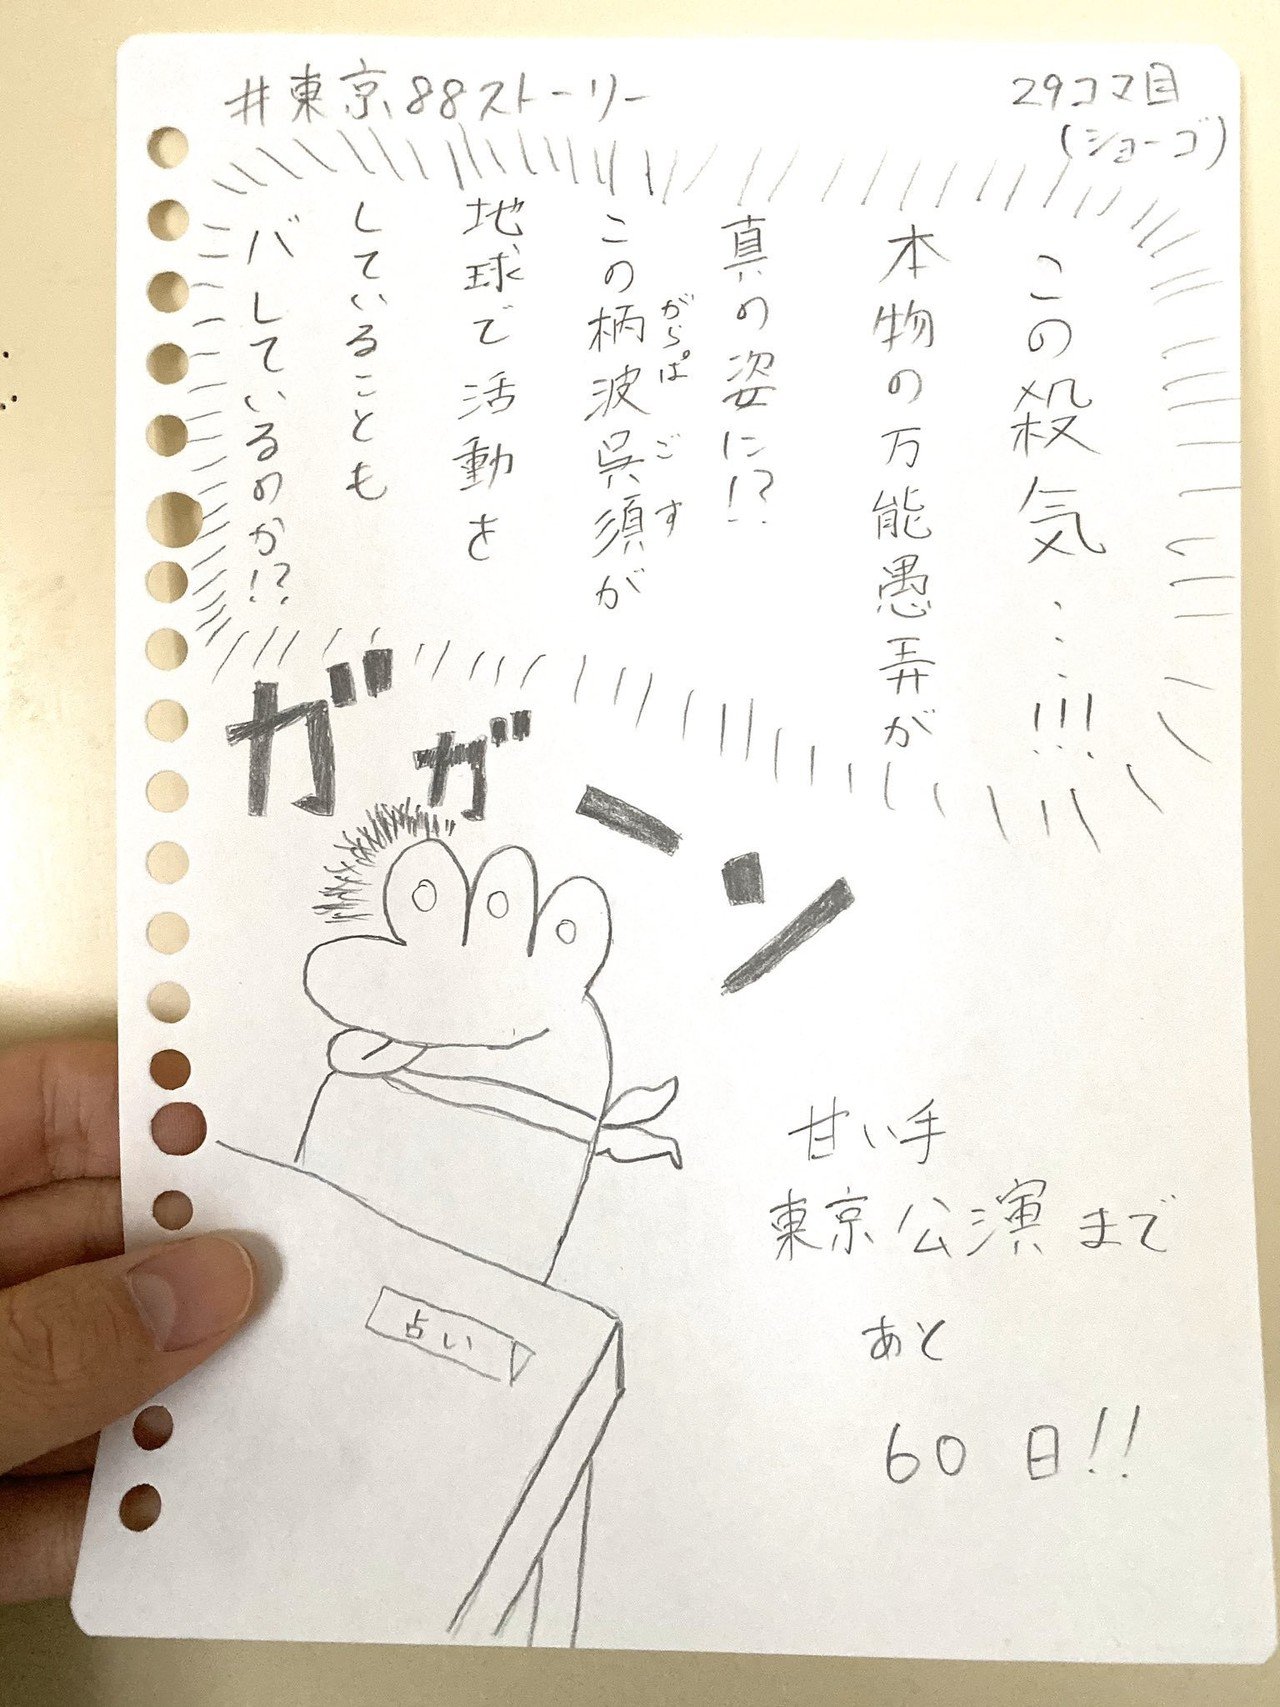 #東京88ストーリー
29コマ目
(ショーゴ)
この殺気...!!!
本物の万能愚弄が
真の姿に!?
この柄波呉須が
がらぱ ごす
地球で活動を
していることも
バレているのか!?
ガガーン
占い
甘い手
東京公演まで
あと
60日!!